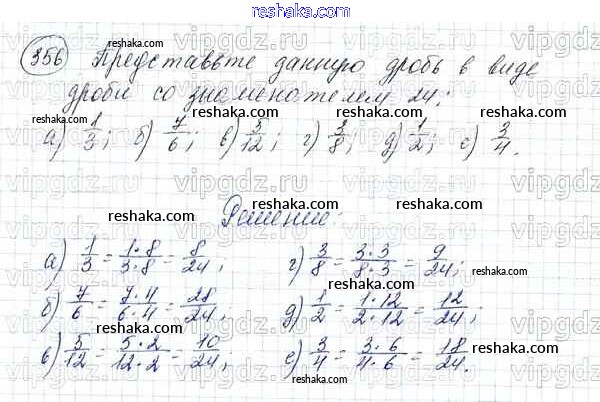 reshaka.com
356 Представьте данную дробь в виде
дроби со знаменателем 24:
а) 1/3; б) 7/6; в) 5/12; г) 3/8; д) 1/2; е) 3/4.
Решение:
а) 1/3 = 1·8/3·8 = 8/24; г) 3/8 = 3·3/8·3 = 9/24;
б) 7/6 = 7·4/6·4 = 28/24; д) 1/2 = 1·12/2·12 = 12/24;
в) 5/12 = 5·2/12·2 = 10/24; е) 3/4 = 3·6/4·6 = 18/24.
vipgdz.ru
reshaka.com